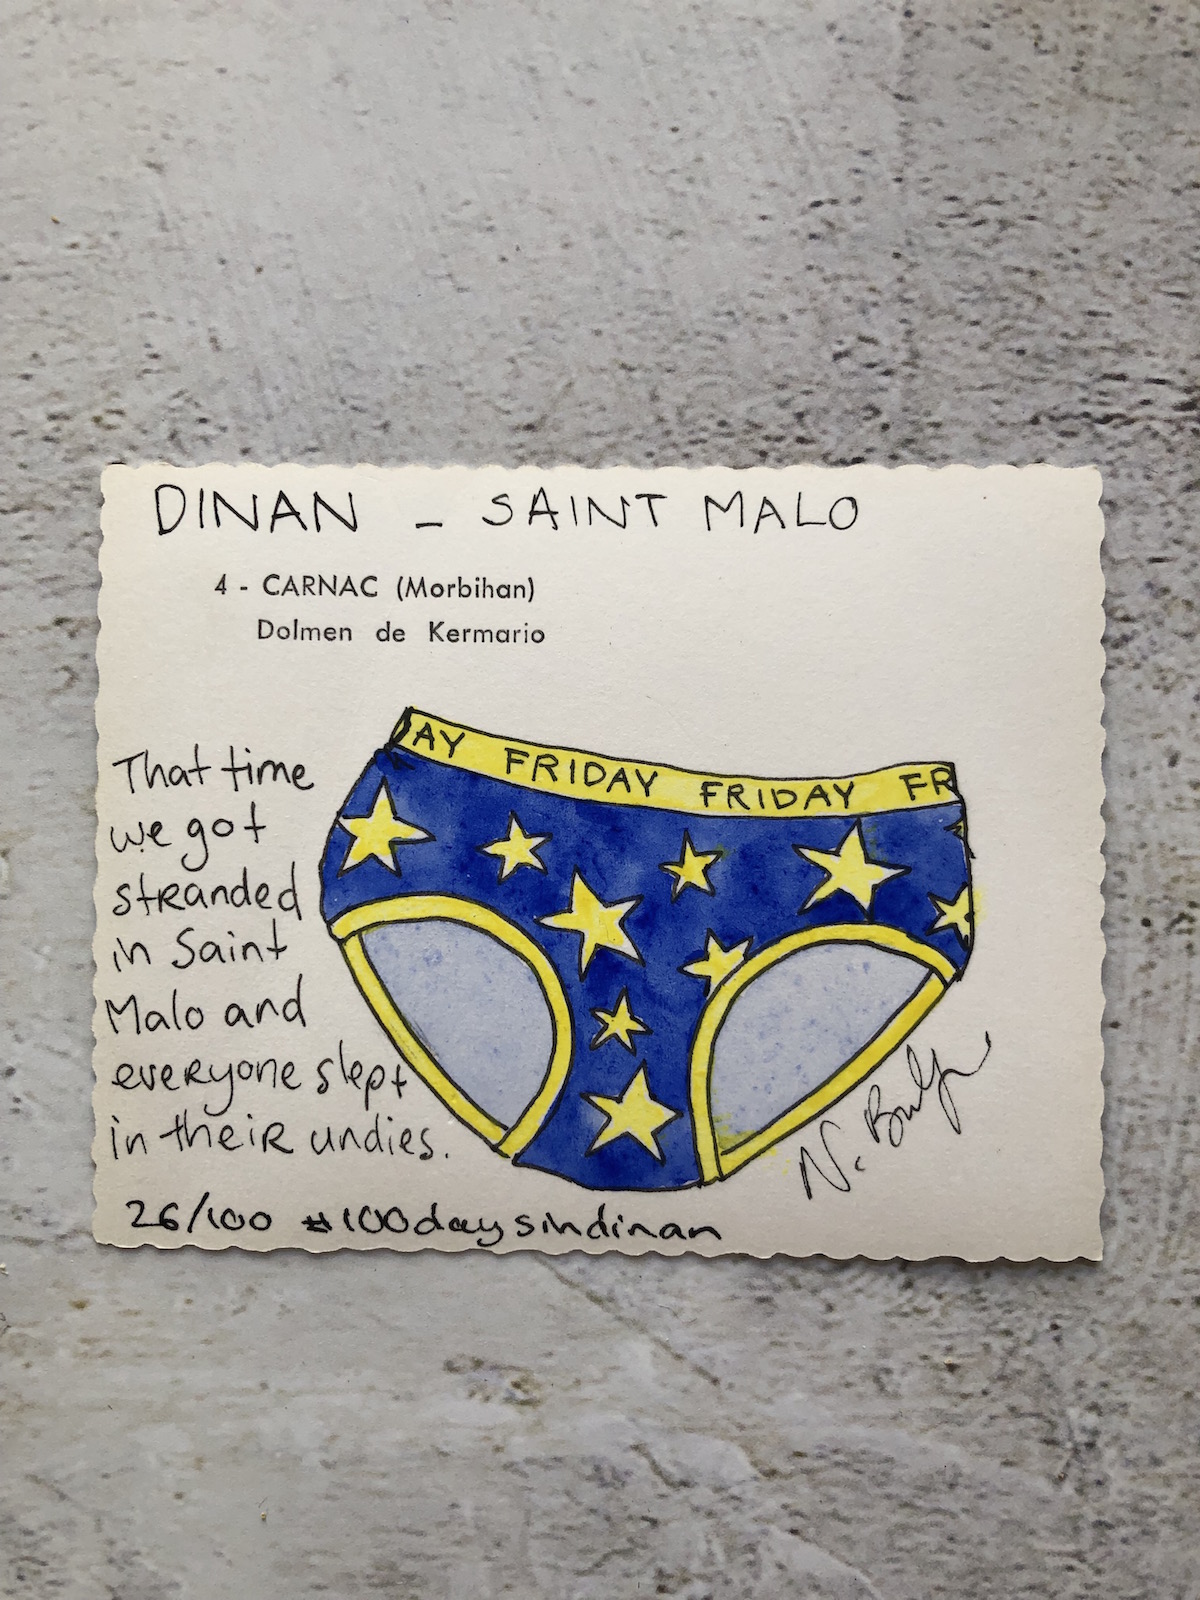 DINAN - SAINT MALO
4 - CARNAC (Morbihan)
Dolmen de Kermario
AY FRIDAY FRIDAY FR
That time
we got
stranded
in Saint
Malo and
everyone slept
in their undies.
N.
26/100 #100daysindinan